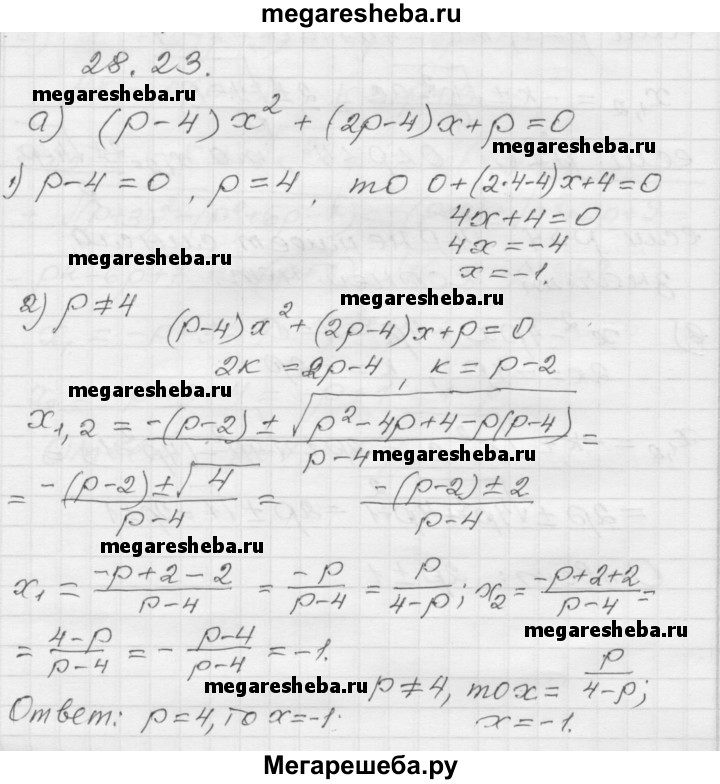 megaresheba.ru
28.23.
megaresheba.ru
а) (p-4)x² + (2p-4)x + p = 0
1) p-4=0, p=4, то 0+(2·4-4)x+4=0
4x+4=0
4x=-4
megaresheba.ru
x=-1.
megaresheba.ru
2) p≠4 (p-4)x²+(2p-4)x+p=0
2k=2p-4, k=p-2
megaresheba.ru
x₁,₂ = (-(p-2) ± √(p²-4p+4-p(p-4)))/(p-4) =
megaresheba.ru
= (-(p-2)±√4)/(p-4) = (-(p-2)±2)/(p-4)
megaresheba.ru
x₁ = (-p+2-2)/(p-4) = (-p)/(p-4) = p/(4-p); x₂ = (-p+2+2)/(p-4) =
megaresheba.ru
= (4-p)/(p-4) = -(p-4)/(p-4) = -1.
megaresheba.ru
p≠4, то x = p/(4-p);
Ответ: p=4, то x=-1. x=-1.
Мегарешеба.ру